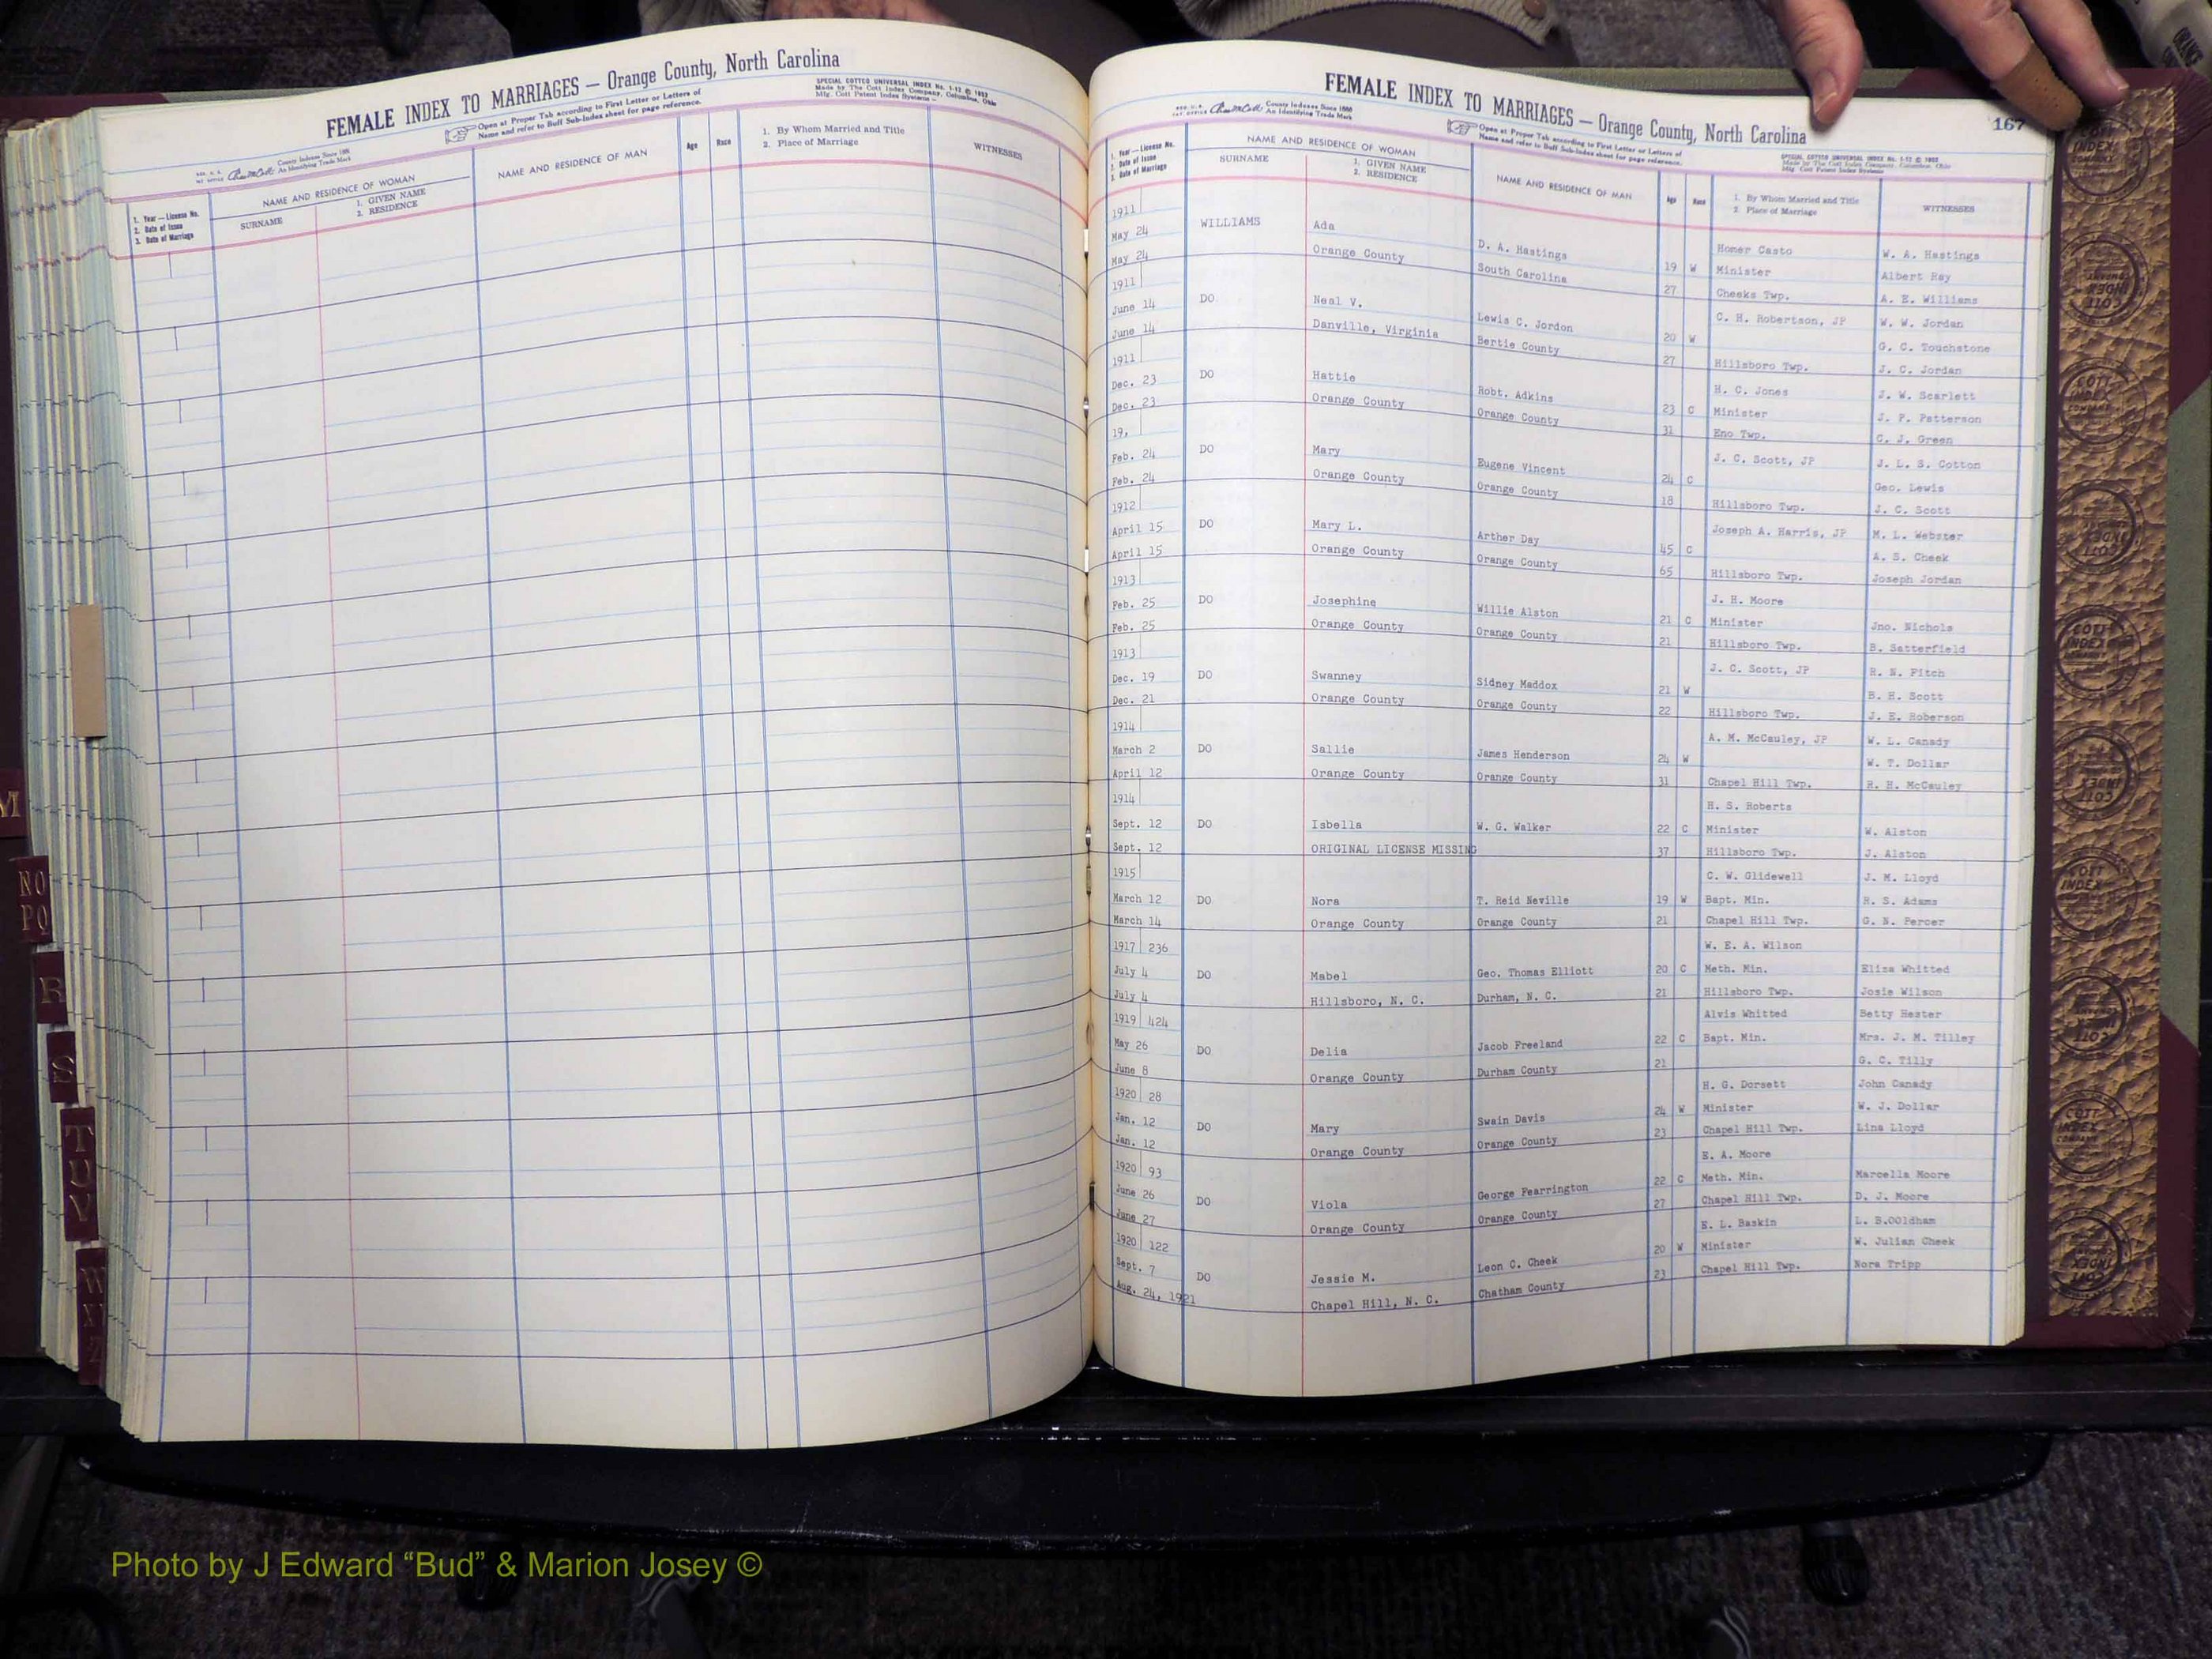 FEMALE INDEX TO MARRIAGES — Orange County, North Carolina
Open at Proper Tab according to First Letter or Letters of
Name and refer to Buff Sub-Index sheet for page reference.
SPECIAL COTTCO UNIVERSAL INDEX No. 1-12 © 1952
Made by The Cott Index Company, Columbus, Ohio
Mfg. Cott Patent Index Systems
County Indexes Since 1888
An Identifying Trade Mark
1. Year — License No.
2. Date of Issue
3. Date of Marriage
NAME AND RESIDENCE OF WOMAN
SURNAME
1. GIVEN NAME
2. RESIDENCE
NAME AND RESIDENCE OF MAN
Age
Race
1. By Whom Married and Title
2. Place of Marriage
WITNESSES
FEMALE INDEX TO MARRIAGES — Orange County, North Carolina
167
County Indexes Since 1888
An Identifying Trade Mark
Open at Proper Tab according to First Letter or Letters of
Name and refer to Buff Sub-Index sheet for page reference.
SPECIAL COTTCO UNIVERSAL INDEX No. 1-12 © 1952
Made by The Cott Index Company, Columbus, Ohio
Mfg. Cott Patent Index Systems
1. Year — License No.
2. Date of Issue
3. Date of Marriage
NAME AND RESIDENCE OF WOMAN
SURNAME
1. GIVEN NAME
2. RESIDENCE
NAME AND RESIDENCE OF MAN
Age
Race
1. By Whom Married and Title
2. Place of Marriage
WITNESSES
1911 Homer Casto W. A. Hastings
May 24 WILLIAMS Ada D. A. Hastings 19 W Minister Albert Ray
May 24 Orange County South Carolina 27 Cheeks Twp. A. E. Williams
1911 C. H. Robertson, JP W. W. Jordan
June 14 DO Neal V. Lewis C. Jordon 20 W G. C. Touchstone
June 14 Danville, Virginia Bertie County 27 Hillsboro Twp. J. C. Jordan
1911 H. C. Jones J. W. Scarlett
Dec. 23 DO Hattie Robt. Adkins 23 C Minister J. F. Patterson
Dec. 23 Orange County Orange County 31 Eno Twp. C. J. Green
19, J. C. Scott, JP J. L. S. Cotton
Feb. 24 DO Mary Eugene Vincent 24 C Geo. Lewis
Feb. 24 Orange County Orange County 18 Hillsboro Twp. J. C. Scott
1912 Joseph A. Harris, JP M. L. Webster
April 15 DO Mary L. Arther Day 45 C A. S. Cheek
April 15 Orange County Orange County 65 Hillsboro Twp. Joseph Jordan
1913 J. H. Moore
Feb. 25 DO Josephine Willie Alston 21 C Minister Jno. Nichols
Feb. 25 Orange County Orange County 21 Hillsboro Twp. B. Satterfield
1913 J. C. Scott, JP R. N. Fitch
Dec. 19 DO Swanney Sidney Maddox 21 W B. H. Scott
Dec. 21 Orange County Orange County 22 Hillsboro Twp. J. E. Roberson
1914 A. M. McCauley, JP W. L. Canady
March 2 DO Sallie James Henderson 24 W W. T. Dollar
April 12 Orange County Orange County 31 Chapel Hill Twp. R. H. McCauley
1914 H. S. Roberts
Sept. 12 DO Isbella W. G. Walker 22 C Minister W. Alston
Sept. 12 ORIGINAL LICENSE MISSING 37 Hillsboro Twp. J. Alston
1915 C. W. Glidewell J. M. Lloyd
March 12 DO Nora T. Reid Neville 19 W Bapt. Min. R. S. Adams
March 14 Orange County Orange County 21 Chapel Hill Twp. G. N. Percer
1917 236 W. E. A. Wilson
July 4 DO Mabel Geo. Thomas Elliott 20 C Meth. Min. Eliza Whitted
July 4 Hillsboro, N. C. Durham, N. C. 21 Hillsboro Twp. Josie Wilson
1919 424 Alvis Whitted Betty Hester
May 26 DO Delia Jacob Freeland 22 C Bapt. Min. Mrs. J. M. Tilley
June 8 Orange County Durham County 21 G. C. Tilly
1920 28 H. G. Dorsett John Canady
Jan. 12 DO Mary Swain Davis 24 W Minister W. J. Dollar
Jan. 12 Orange County Orange County 23 Chapel Hill Twp. Lina Lloyd
1920 93 E. A. Moore
June 26 DO Viola George Fearrington 22 C Meth. Min. Marcella Moore
June 27 Orange County Orange County 27 Chapel Hill Twp. D. J. Moore
1920 122 E. L. Baskin L. B.OOldham
Sept. 7 DO Jessie M. Leon C. Cheek 20 W Minister W. Julian Cheek
Aug. 24, 1921 Chapel Hill, N. C. Chatham County 23 Chapel Hill Twp. Nora Tripp
M
NO
PQ
R
S
T
U
V
W
COTT
INDEX
COMPANY
Photo by J Edward “Bud” & Marion Josey ©